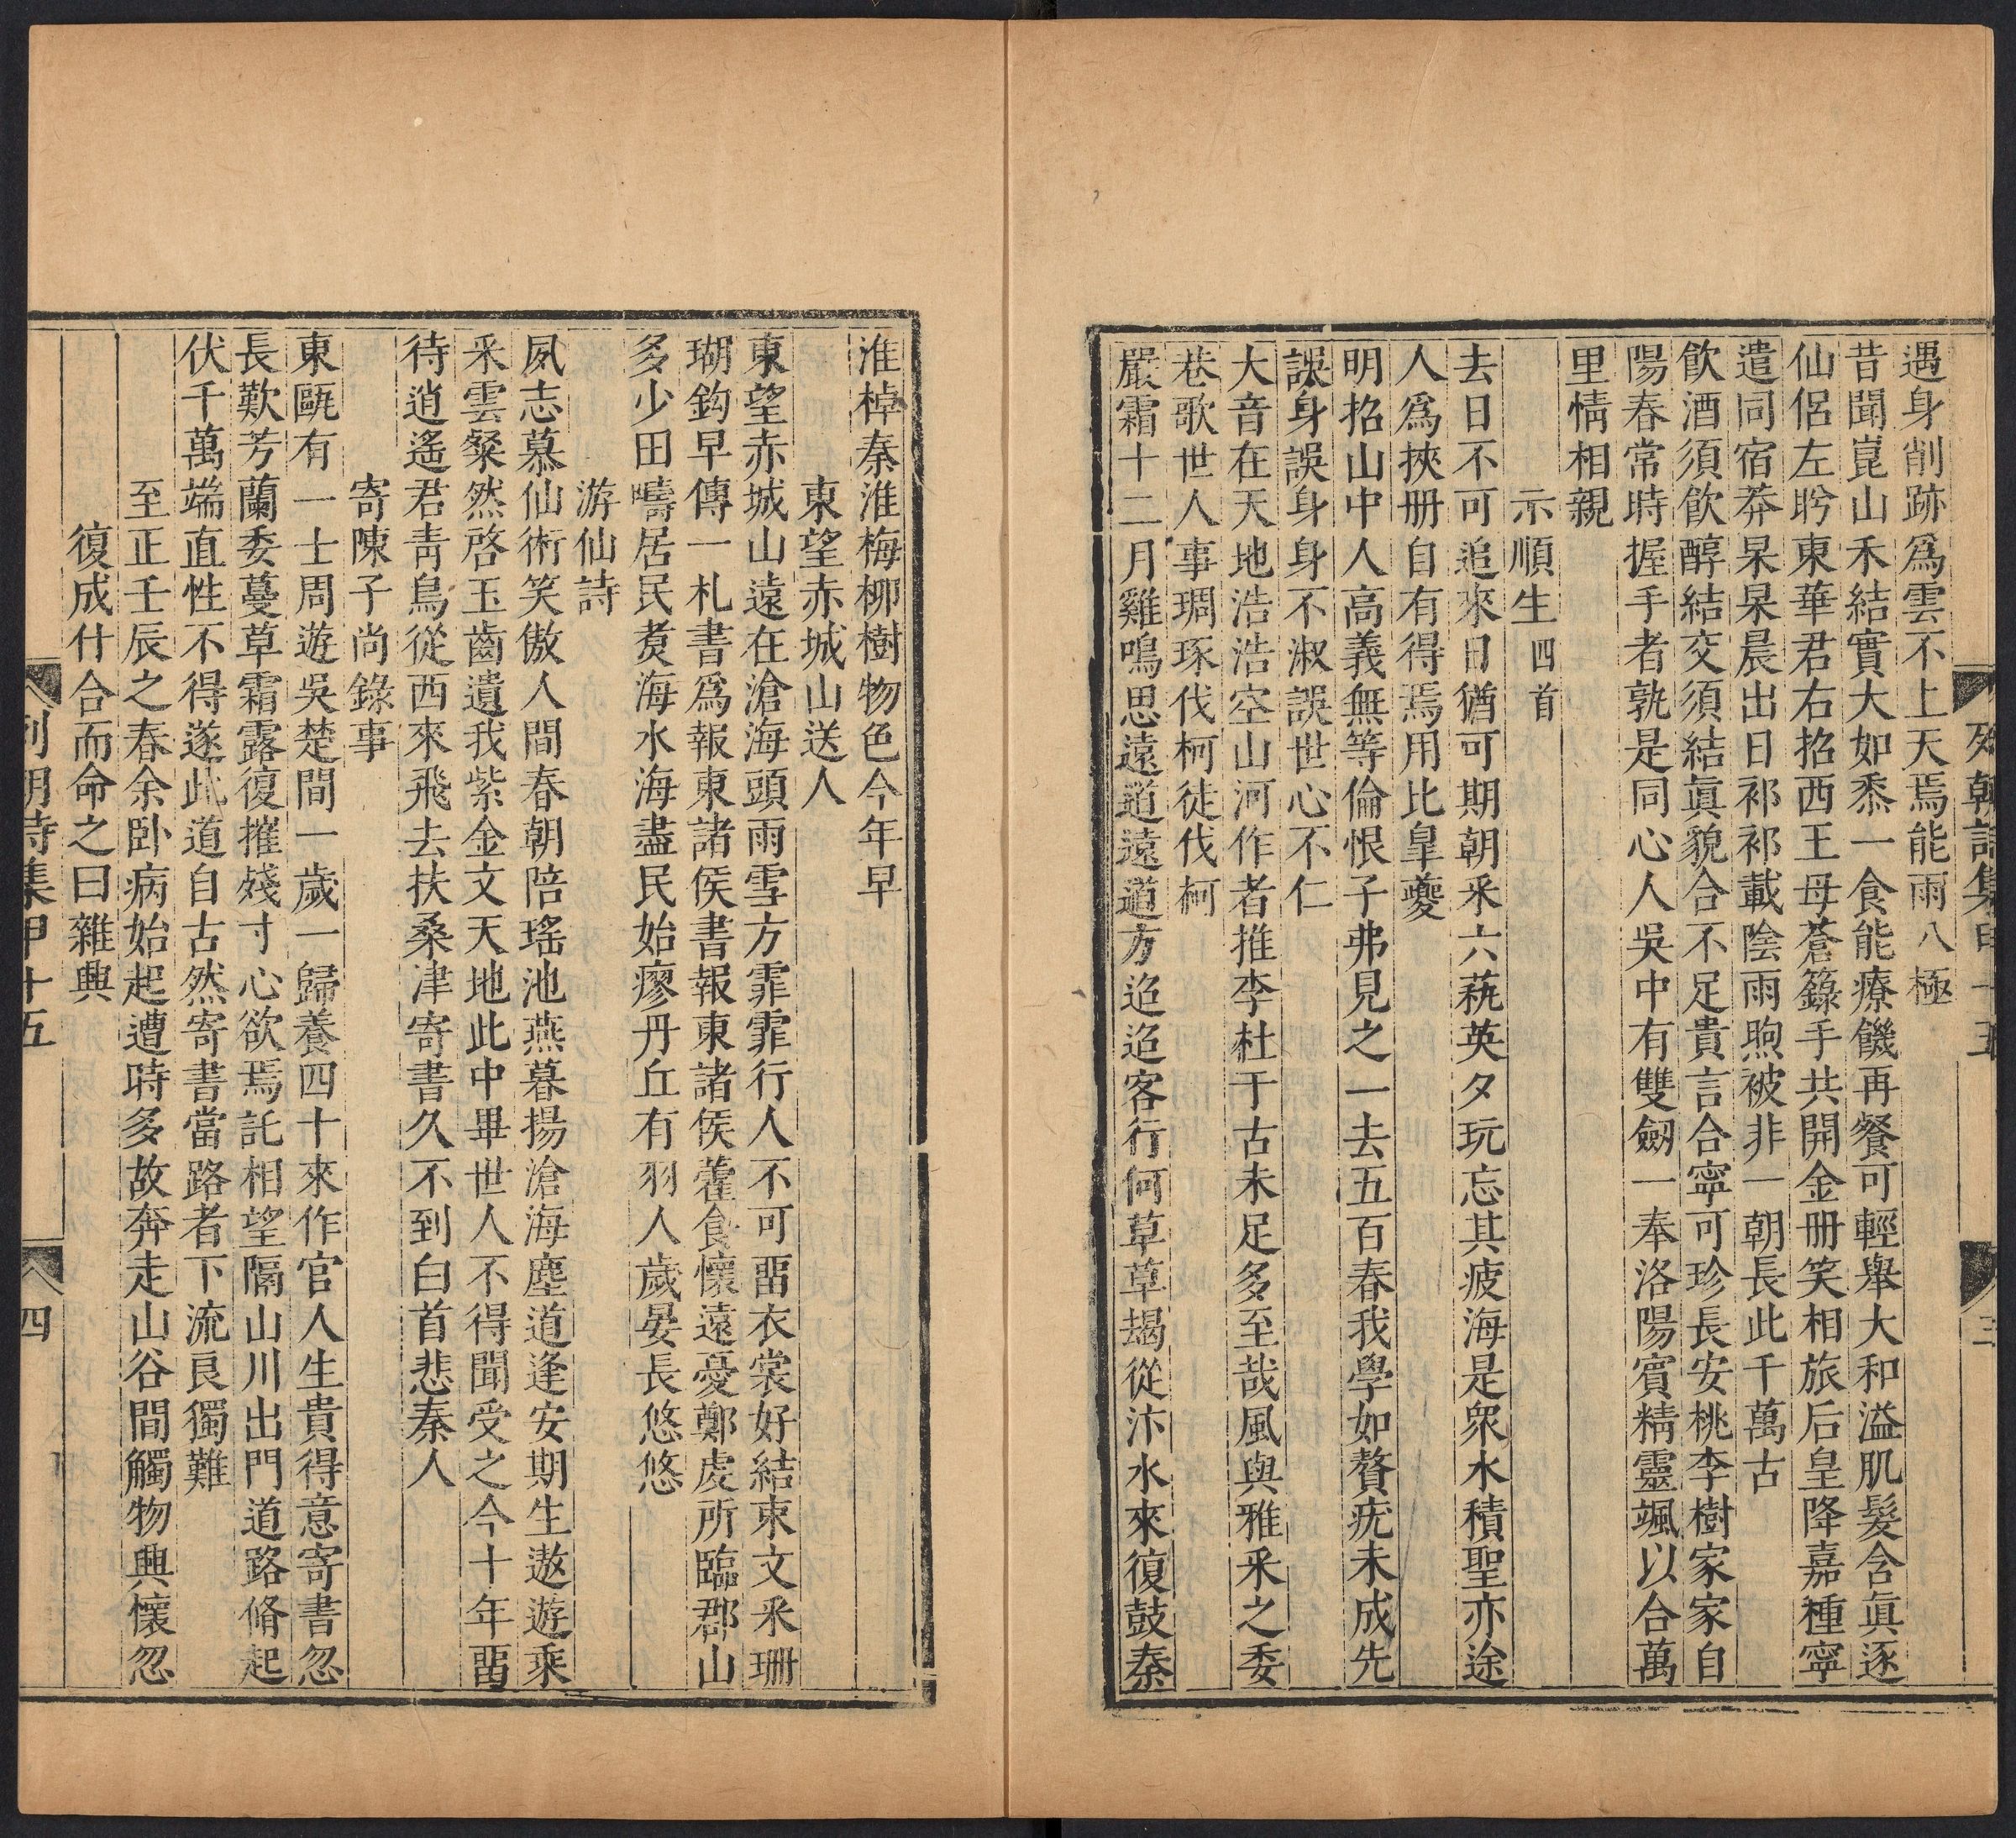 遇身削跡爲雲不上天焉能雨八極
昔聞崑山禾結實大如黍一食能療饑再餐可輕舉大和溢肌髮含眞逐
仙侶左盻東華君右招西王母蒼籙手共開金冊笑相旅后皇降嘉種寧
遣同宿莽杲杲晨出日祁祁載陰雨煦被非一朝長此千萬古
飲酒須飲醇結交須結眞貌合不足貴言合寧可珍長安桃李樹家家自
陽春常時握手者孰是同心人吳中有雙劒一奉洛陽賓精靈颯以合萬
里情相親
示順生四首
去日不可追來日猶可期朝采六蓺英夕玩忘其疲海是衆水積聖亦途
人爲挾冊自有得焉用比臯夔
明招山中人高義無等倫恨子弗見之一去五百春我學如贅疣未成先
誤身誤身不淑誤世心不仁
大音在天地浩浩空山河作者推李杜于古未足多至哉風與雅采之委
巷歌世人事琱琢伐柯徒伐柯
嚴霜十二月雞鳴思遠道遠道方迢迢客行何草草朅從汴水來復鼓秦
列朝詩集甲十五
三
淮棹秦淮梅柳樹物色今年早
東望赤城山送人
東望赤城山遠在滄海頭雨雪方霏霏行人不可畱衣裳好結束文采珊
瑚鈎早傳一札書爲報東諸侯書報東諸侯藿食懷遠憂鄭虔所臨郡山
多少田疇居民煑海水海盡民始瘳丹丘有羽人歲晏長悠悠
游仙詩
夙志慕仙術笑傲人間春朝陪瑤池燕暮揚滄海塵道逢安期生遨遊乘
采雲粲然啓玉齒遺我紫金文天地此中畢世人不得聞受之今十年畱
待逍遙君靑鳥從西來飛去扶桑津寄書久不到白首悲秦人
寄陳子尚錄事
東甌有一士周遊吳楚間一歲一歸養四十來作官人生貴得意寄書忽
長歎芳蘭委蔓草霜露復摧殘寸心欲焉託相望隔山川出門道路脩起
伏千萬端直性不得遂此道自古然寄書當路者下流良獨難
至正壬辰之春余卧病始起遭時多故奔走山谷間觸物興懷忽
復成什合而命之曰雜興
列朝詩集甲十五
四